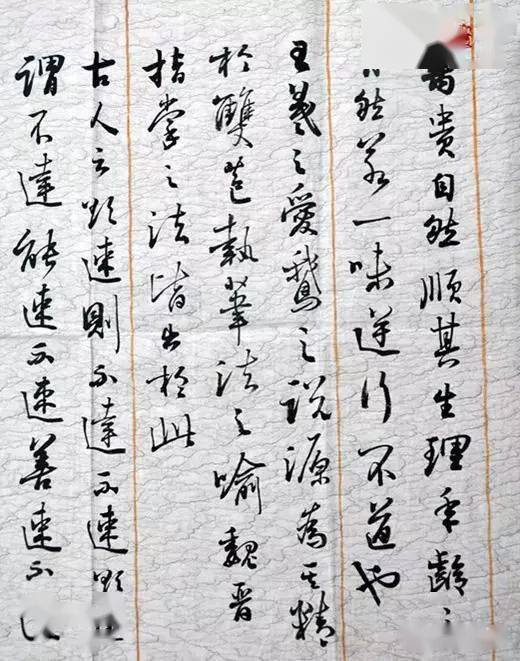 貴自然順其生理年齡之
然若一味逆行不道也
王羲之愛鵝之說源為其精
於雙苞執筆法之喻魏晋
指掌之法皆出於此
古人云欲速則不達不速欲
謂不達能速不速善速不